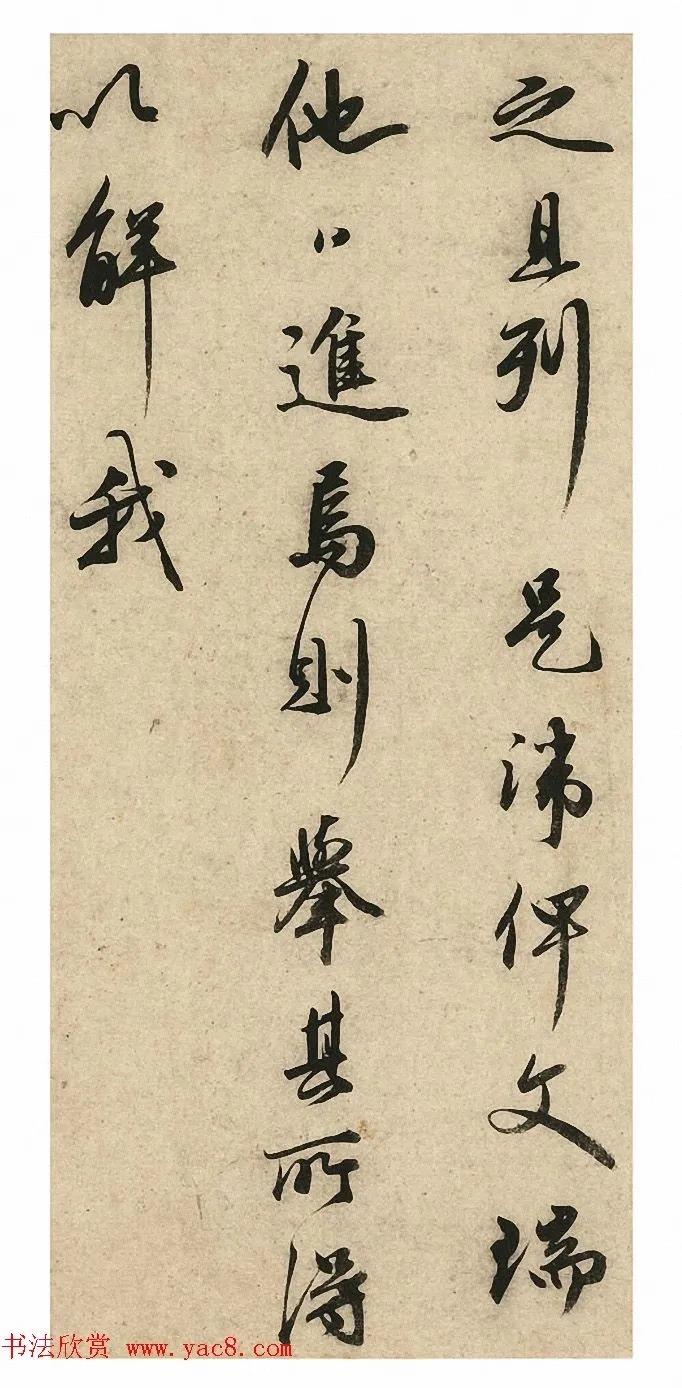 之且列是諱俾文瑞
他日進焉則舉其所得
以解我
书法欣赏 www.yac8.com